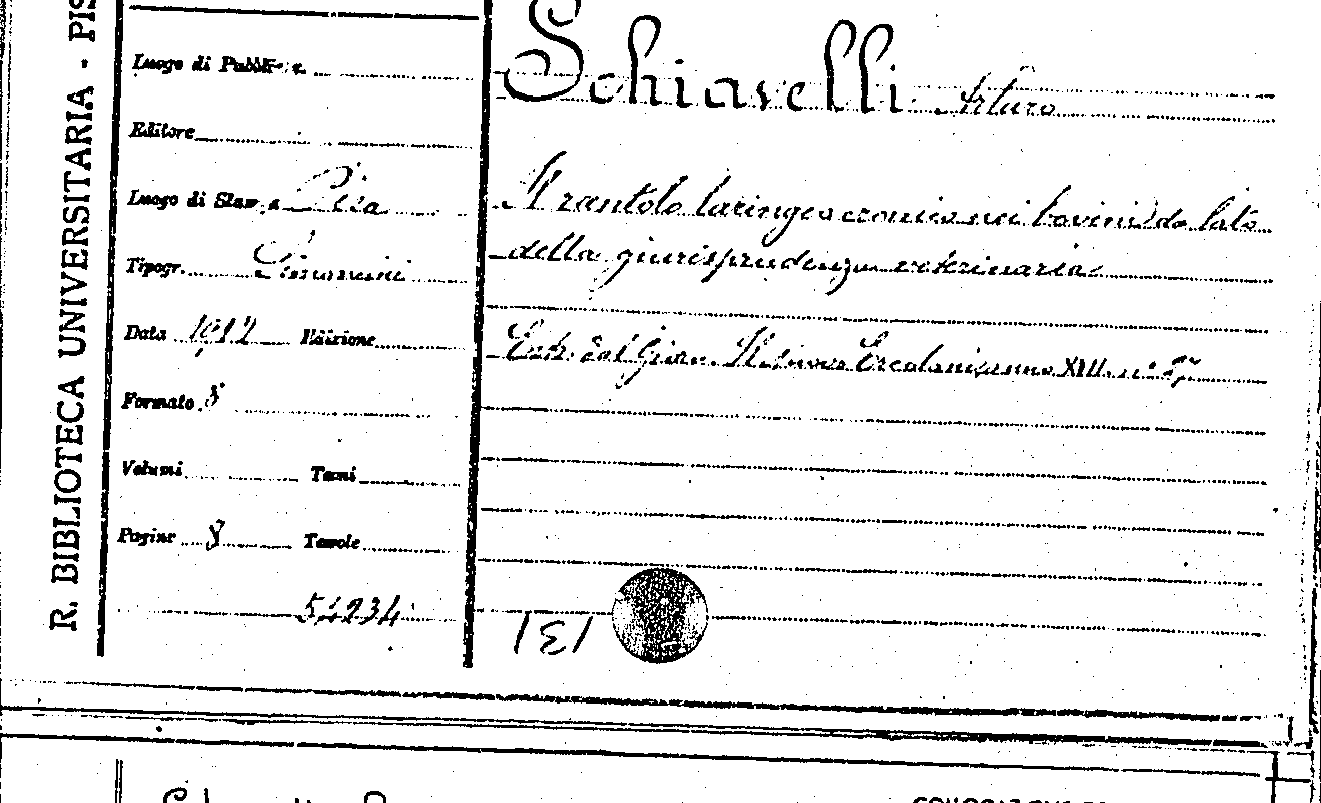 R. BIBLIOTECA UNIVERSITARIA - PIS
Luogo di Pubblic.
Editore
Luogo di Stampa Pisa
Tipogr. Simoncini
Data 1912 Edizione
Formato 8
Volumi Tomi
Pagine 8 Tavole
51234
Schiavelli Arturo
Il rantolo laringeo cronico nei bovini da lato
della giurisprudenza veterinaria
Estr. dal Giorn. Il Nuovo Ercolani anno XVII. n°
131